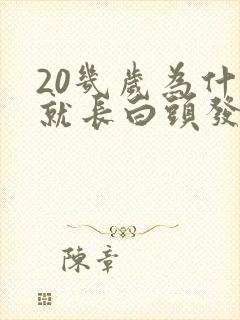 20幾歲為什
就長白頭發
陳章